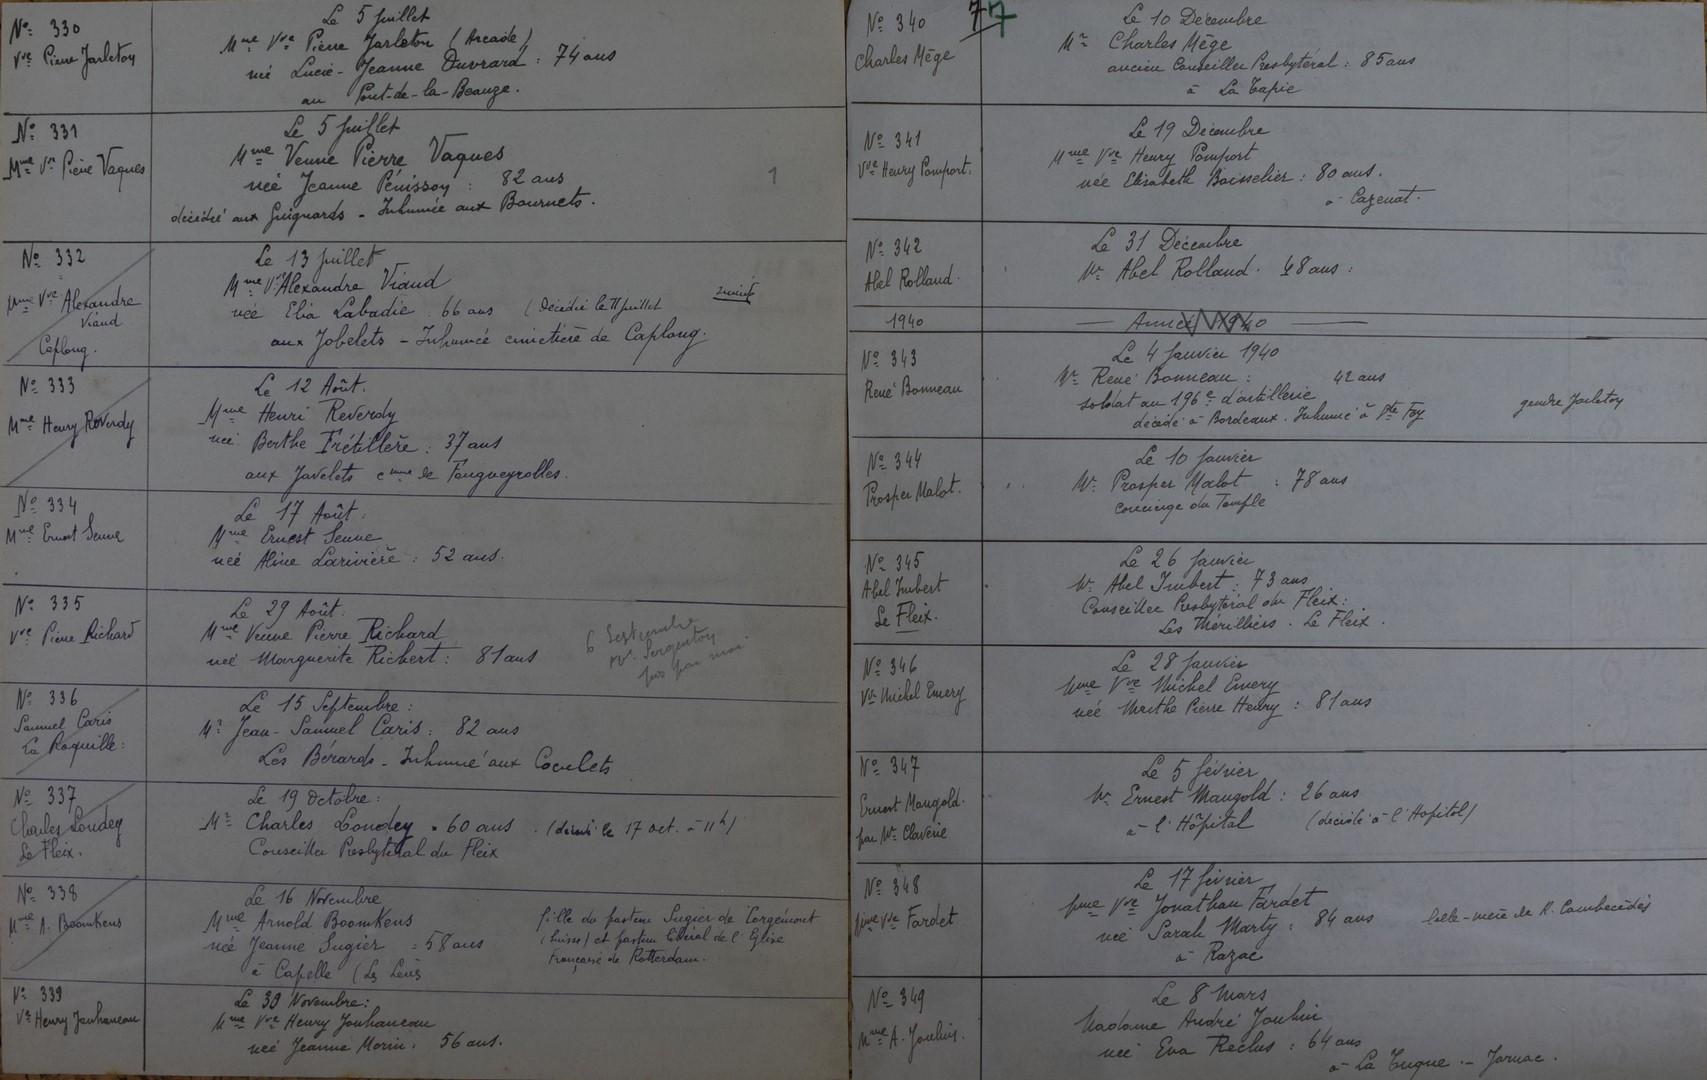 N° 330
Vve Pierre Jarleton
Le 5 Juillet
Mme Vve Pierre Jarleton (Arcade)
né Lucie-Jeanne Ouvrard : 74 ans
au Pont-de-la-Beauze.
N° 331
Mme Vve Pierre Vaques
Le 5 Juillet
Mme Veuve Pierre Vaques
née Jeanne Pénissoy : 82 ans
décédée aux Guignards - Inhumée aux Bournets.
1
N° 332
Mme Vve Alexandre
Viaud
Caplong.
Le 13 Juillet
Mme Vve Alexandre Viaud
née Elia Labadie . 66 ans (Décédée le 11 Juillet
aux Jobelets - Inhumée cimetière de Caplong.
N° 333
Mme Henry Reverdy
Le 12 Août.
Mme Henri Reverdy
née Berthe Frétillère : 37 ans
aux Javelets cmne de Fougueyrolles.
N° 334
Mme Ernest Senne
Le 17 Août :
Mme Ernest Senne
née Aline Larivière : 52 ans.
N° 335
Vve Pierre Richard
Le 29 Août :
Mme Veuve Pierre Richard
née Marguerite Richert : 81 ans
6 Septembre
Mr Sergenton
pas par moi
N° 336
Samuel Caris
La Roquille :
Le 15 Septembre :
Mr Jean-Samuel Caris : 82 ans
Les Bérards - Inhumé aux Coculets
N° 337
Charles Loudey
Le Fleix.
Le 19 Octobre :
Mr Charles Loudey . 60 ans . (décédé le 17 oct. à 11h)
Conseiller Presbytéral du Fleix
N° 338
Mme A. Boomkens
Le 16 Novembre
Mme Arnold Boomkens
née Jeanne Sugier = 58 ans
à Capelle (Les Lèves
fille du pasteur Sugier de Corgémont
(Suisse) et pasteur libéral de l'Eglise
Française de Rotterdam.
N° 339
Vve Henry Jouhaneau
Le 30 Novembre :
Mme Vve Henry Jouhaneau
née Jeanne Morin . 56 ans.
77
N° 340
Charles Mège
Le 10 Décembre
Mr Charles Mège
ancien Conseiller Presbytéral : 85 ans
à La Tapie
N° 341
Vve Henry Pomport.
Le 19 Décembre
Mme Vve Henry Pomport
née Elisabeth Boisselier : 80 ans.
à Cazenat.
N° 342
Abel Rolland.
Le 31 Décembre
Mr Abel Rolland . 48 ans :
1940
Année 1940
N° 343
René Bonneau
Le 4 Janvier 1940
Mr René Bonneau : 42 ans
soldat au 196e d'artillerie
décédé à Bordeaux . Inhumé à Ste Foy
gendre Jarleton
N° 344
Prosper Malot.
Le 10 Janvier
Mr Prosper Malot : 78 ans
concierge du Temple
N° 345
Abel Imbert
Le Fleix.
Le 26 Janvier
Mr Abel Imbert : 73 ans
Conseiller Presbytéral du Fleix :
Les Thérilliers . Le Fleix .
N° 346
Vve Michel Emery
Le 28 Janvier
Mme Vve Michel Emery
née Marthe Pierre Henry : 81 ans
N° 347
Ernest Mangold.
par Mr Claverie
Le 5 février
Mr Ernest Mangold : 26 ans
à l'Hôpital (décédé à l'Hôpital)
N° 348
Mme Vve Fardet
Le 17 février
Mme Vve Jonathan Fardet
née Sarah Marty : 84 ans
à Razac
belle-mère de R. Combecèdes
N° 349
Mme A. Jouhin.
Le 8 Mars
Madame André Jouhin
née Eva Reclus : 64 ans
à La Tuque - Jarnac.